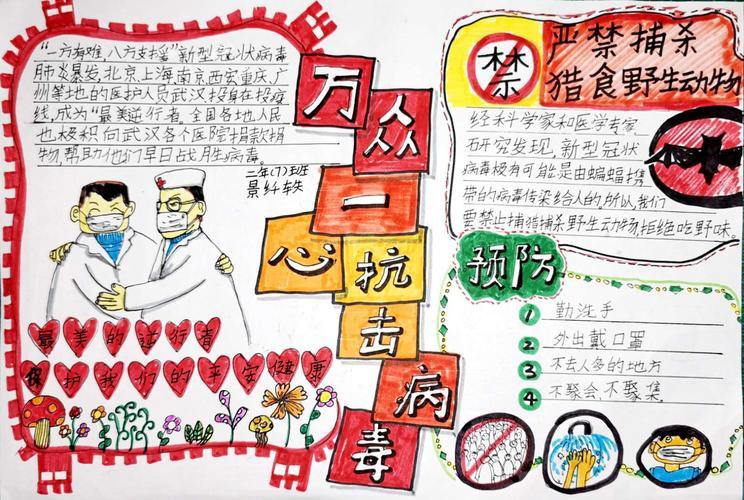 "一方有难，八方支援"新型冠状病毒
肺炎暴发，北京上海南京西安重庆，广
州等地的医护人员武汉，投身在投疫
线，成为"最美逆行者，全国各地人民
也积极向武汉各个医院捐款捐
物，帮助他们早日战胜病毒。
二年(7)班
最美的逆行者
保护我们的平安健康
万众一心抗击病毒
禁
严禁捕杀
猎食野生动物
经科学家和医学专家
研究发现，新型冠状
病毒极有可能是由蝙蝠携
带的病毒传染给人的，所以，我们
要禁止捕猎捕杀野生动物，拒绝吃野味。
预防
1 勤洗手
2 外出戴口罩
3 不去人多的地方
4 不聚会，不聚集。